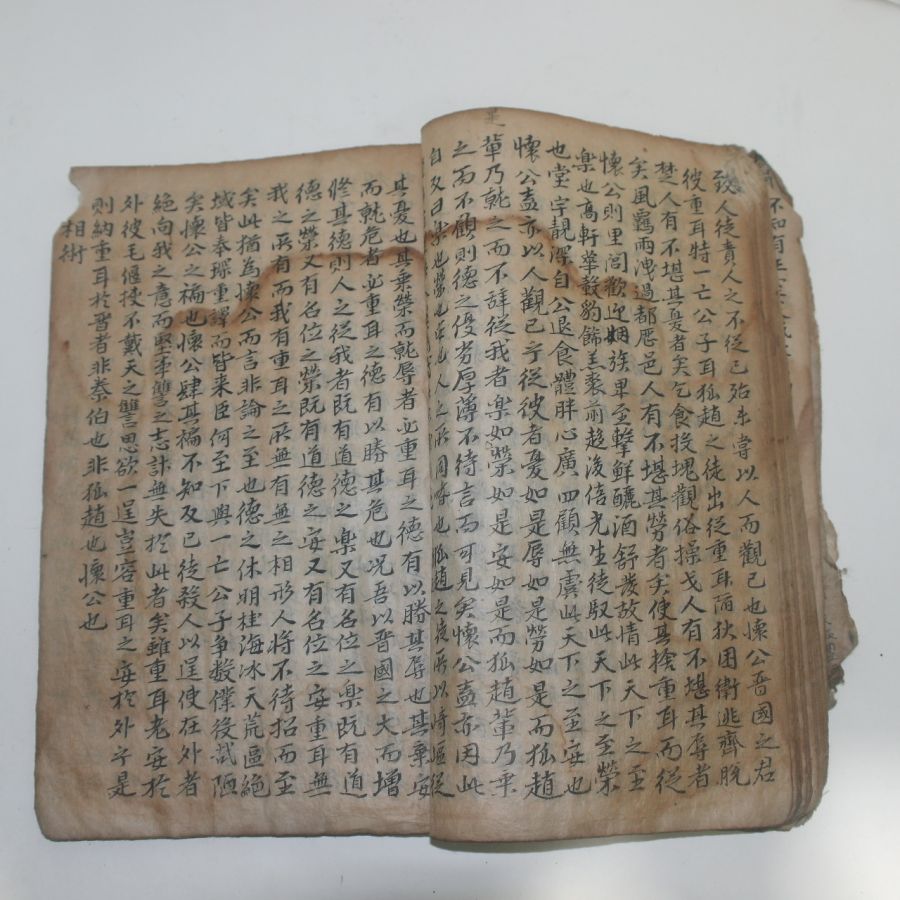 致人徒責人之不從己殆未嘗以人而觀己也懷公晉國之君
彼重耳特一亡公子耳狐趙之徒出從重耳陋狄困衛逃齊脫
楚人有不堪其憂者矣乞食投塊觀俗操戈人有不堪其辱者
矣風霧雨洩過都厯邑人有不堪其勞者矣使其捨重耳而從
懷公則里閭歡迎姻族畢至擊鮮釃酒舒發故情此天下之至
樂也高軒華轂豹飾羔裘前趍後倍光生徒馭此天下之至榮
也堂宇靚深自公退食體胖心廣四顧無虞此天下之至安也
懷公盍亦以人觀己乎從彼者憂如是辱如是勞如是而狐趙
是
輩乃就之而不辞從我者樂如榮如是安如是而狐趙輩乃棄
之而不顧則德之優劣厚薄不待言而可見矣懷公盍亦因此
自反曰樂也榮也安也人之所同嗜也狐趙之徒所以崎嶇從
其憂也其棄榮而就辱者必重耳之德有以勝其辱也其棄安
而就危者必重耳之德有以勝其危也况吾以晉國之大而增
修其德則人之從我者既有道德之樂又有名位之樂既有道
德之榮又有名位之榮既有道德之安又有名位之安重耳無
我之所有而我有重耳之所無有無之相形人將不待招而至
矣此猶為懷公而言非論之至也德之休明桂海冰天荒區絕
域皆奉琛重譯而皆来臣何至下與一亡公子争數僕役試陋
矣懷公之褊也懷公肆其褊不知反己徒殺人以逞使在外者
絕向我之意而堅事讐之志計無失於此者矣雖重耳老安於
外彼毛偃挾不戴天之讐思欲一逞豈容重耳之安於外乎是
則納重耳於晉者非秦伯也非狐趙也懷公也
相術